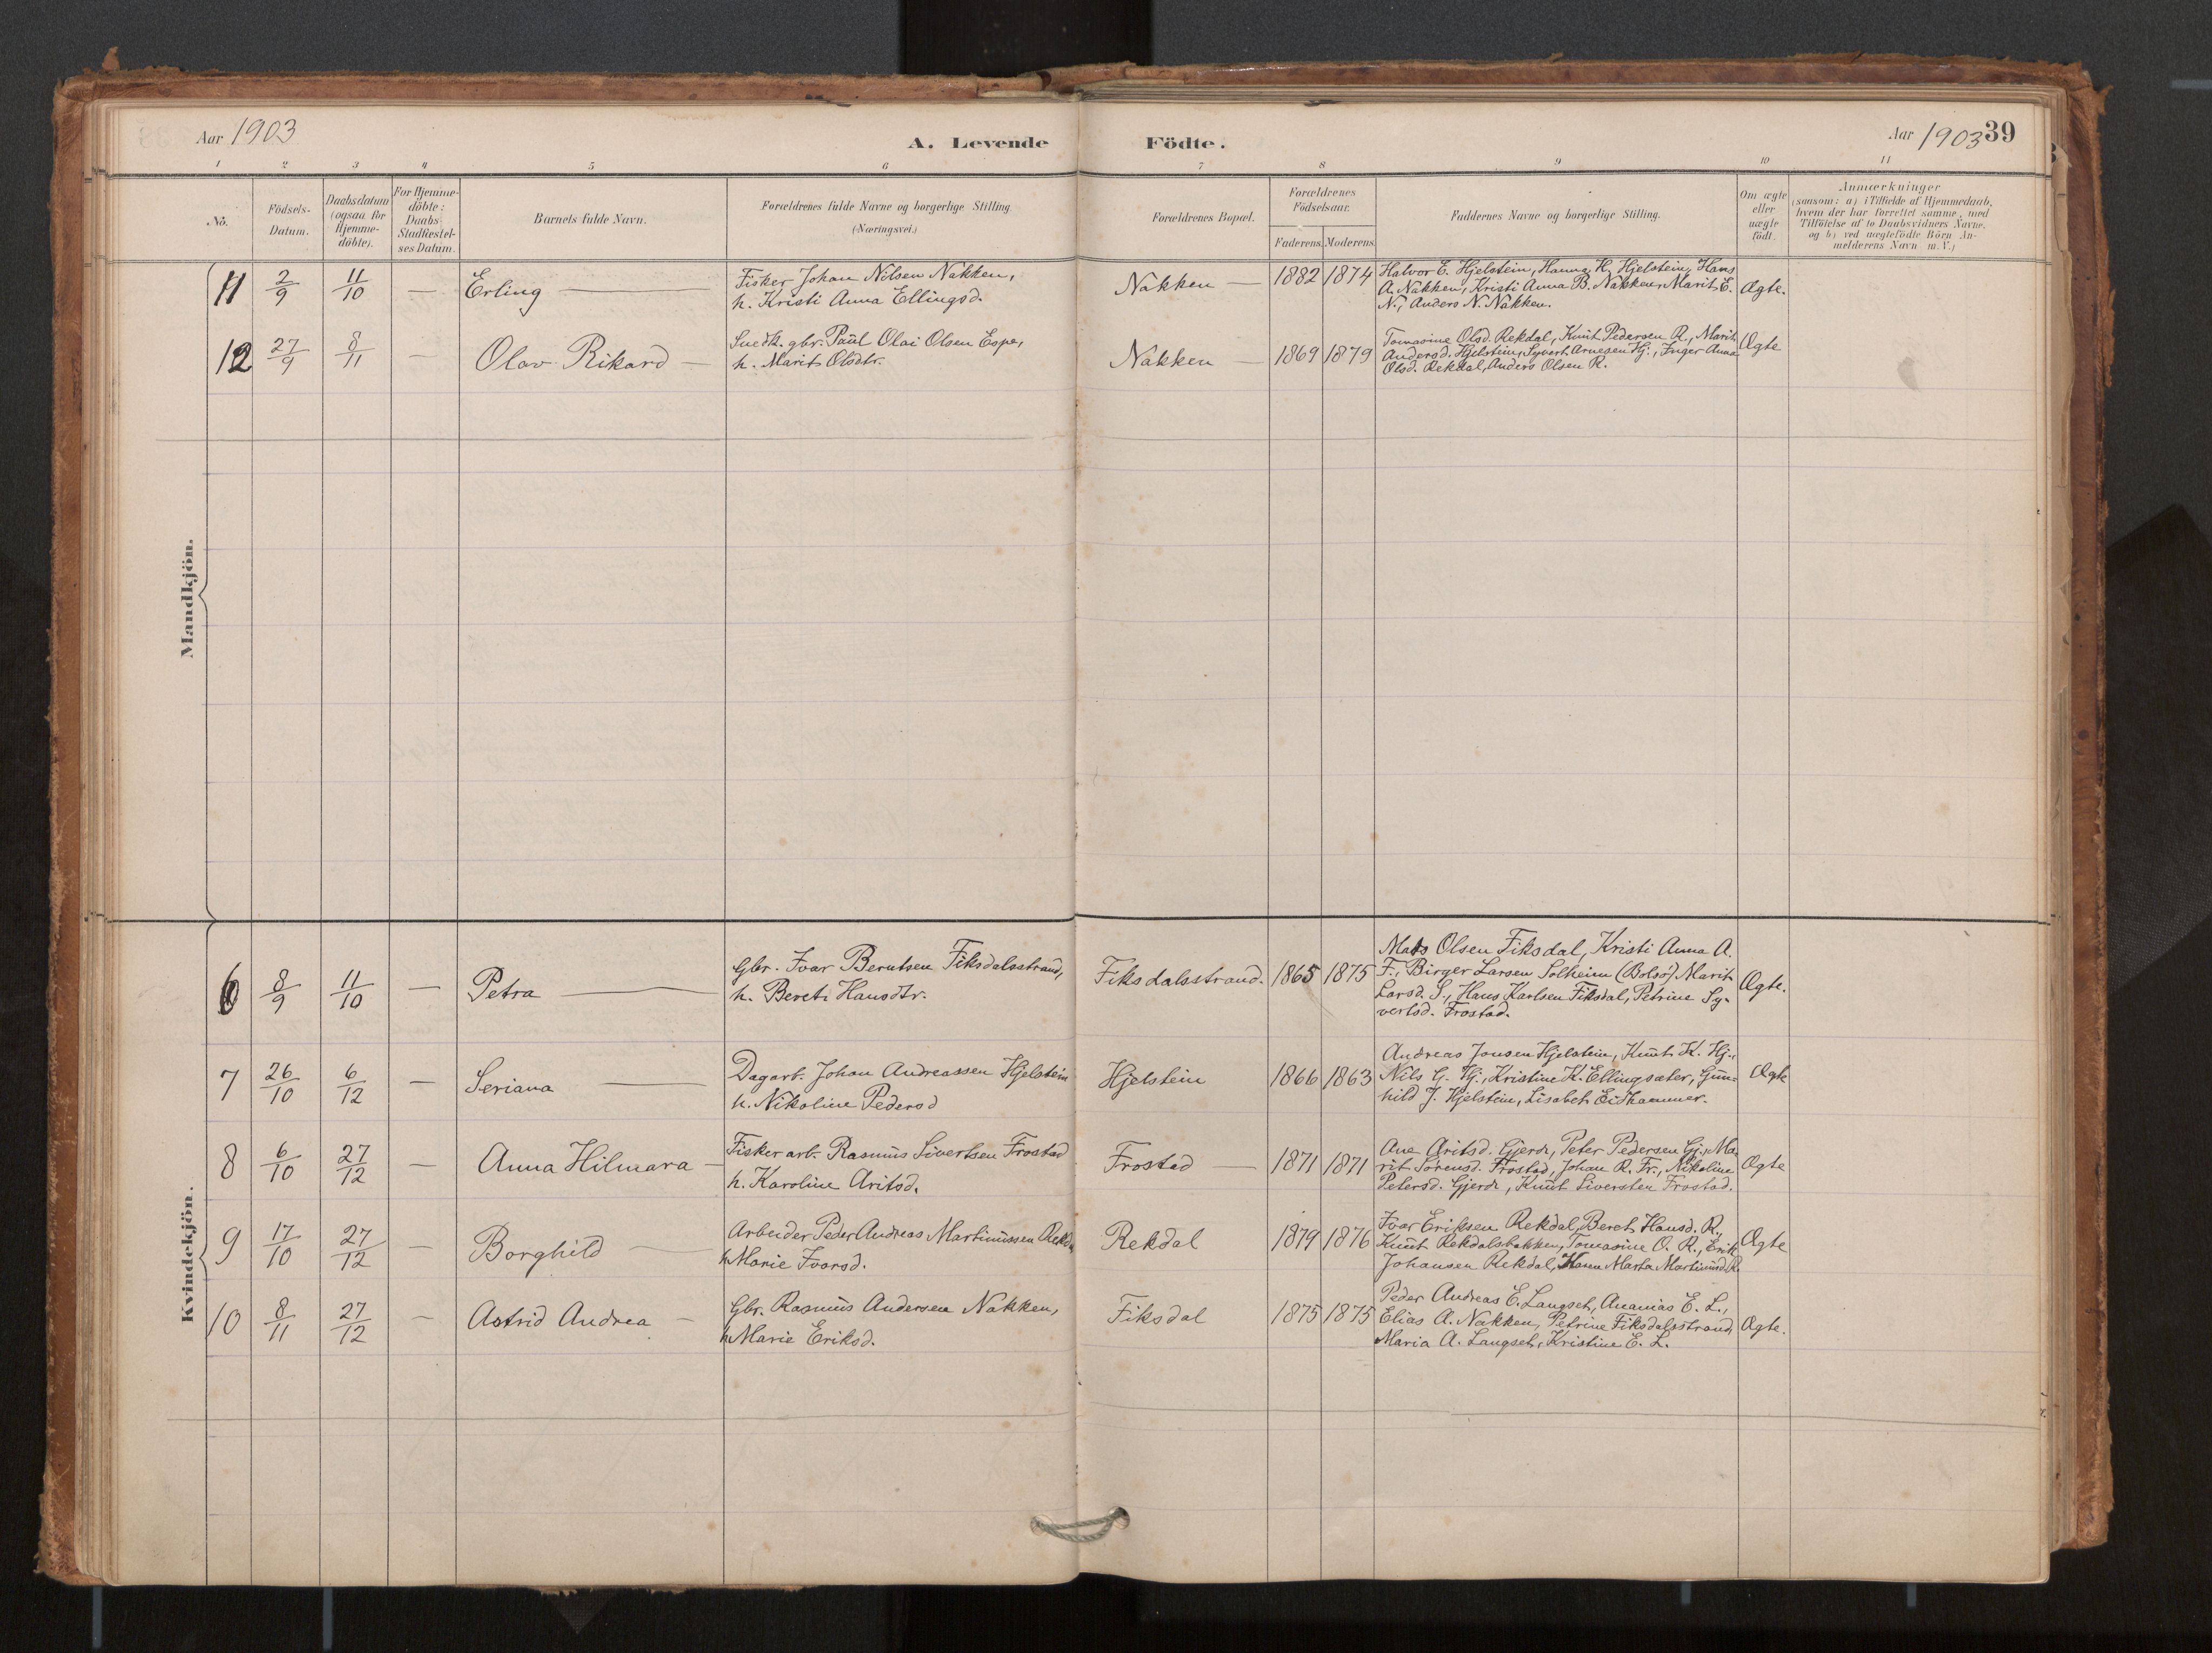 Aar 1903
A. Levende Födte.
Aar 1903 39
1 2 3 4 5 6 7 8 9 10 11
No.
Födsels-Datum.
Daabsdatum (ogsaa for Hjemme-döbte).
For Hjemme-döbte: Daabs-Stadfæstel-ses Datum.
Barnets fulde Navn.
Forældrenes fulde Navne og borgerlige Stilling. (Næringsvei.)
Forældrenes Bopæl.
Forældrenes Födselsaar.
Faderens. Moderens.
Faddernes Navne og borgerlige Stilling.
Om ægte eller uægte födt.
Anmærkninger
(saasom: a) i Tilfælde af Hjemmedaab,
hvem der har forrettet samme, med
Tilföielse af to Daabsvidners Navne,
og b) ved uægtefödte Börn An-
melderens Navn m. V.)
Mandkjön.
11 2/9 11/10 — Erling — Fisker Johan Nilsen Nakken,
h. Kristi Anna Ellingsd.
Nakken — 1882 1874
Halvor E. Hjelstein, Hanna K. Hjelstein, Hans
A. Nakken, Kristi Anna B. Nakken, Marit E.
N., Anders N. Nakken.
Ægte.
12 27/9 8/11 — Olav Rikard — Snedk. gbr. Paul Olai Olsen Espe,
h. Marit Olsdtr.
Nakken — 1869 1879
Tomasine Olsd. Rekdal, Knut Pedersen R., Marit
Andersd. Hjelstein, Syvert Arnesen Hj., Inger Anna
Olsd. Rekdal, Anders Olsen R.
Ægte
Kvindekjön.
6 8/9 11/10 — Petra — Gbr. Ivar Berntsen Fiksdalsstrand,
h. Bereti Hansdtr.
Fiksdalsstrand. 1865 1875
Mats Olsen Fiksdal, Kristi Anna A.
F., Birger Larsen Solheim (Bolsö) Marit
Larsd. S., Hans Karlsen Fiksdal, Petrine Sy-
vertsd. Frostad.
Ægte.
7 26/10 6/12 — Seriana — Dagarb. Johan Andreassen Hjelstein
h. Nikoline Pedersd
Hjelstein 1866 1863
Andreas Jonsen Hjelstein, Knut K. Hj.,
Nils G. Hj., Kristine K. Ellingsæter, Gun-
hild J. Hjelstein, Lisabet Eidhammer.
Ægte
8 6/10 27/12 — Anna Hilmara — Fisker arb. Rasmus Sivertsen Frostad
h. Karoline Aritsd.
Frostad — 1871 1871
Ane Aritsd. Gjerde, Peter Pedersen Gj., Ma-
rit Sörensd. Frostad, Johan R. Fr., Nikoline
Petersd. Gjerde, Knut Siversten Frostad.
Ægte
9 17/10 27/12 — Borghild — Arbeider Peder Andreas Martinussen Rekda
h. Marie Ivarsd.
Rekdal 1879 1876
Ivar Eriksen Rekdal, Beret Hansd. R.,
Knut Rekdalsbakken, Tomasine O. R., Erik
Johansen Rekdal, Karen Marta Martinusd. R.
Ægte
10 8/11 27/12 — Astrid Andrea — Gbr. Rasmus Andersen Nakken,
h. Marie Eriksd.
Fiksdal 1875 1875
Peder Andreas E. Langset, Ananias E. L.,
Elias A. Nakken, Petrine Fiksdalsstrand,
Maria A. Langset, Kristine E. L.
Ægte.